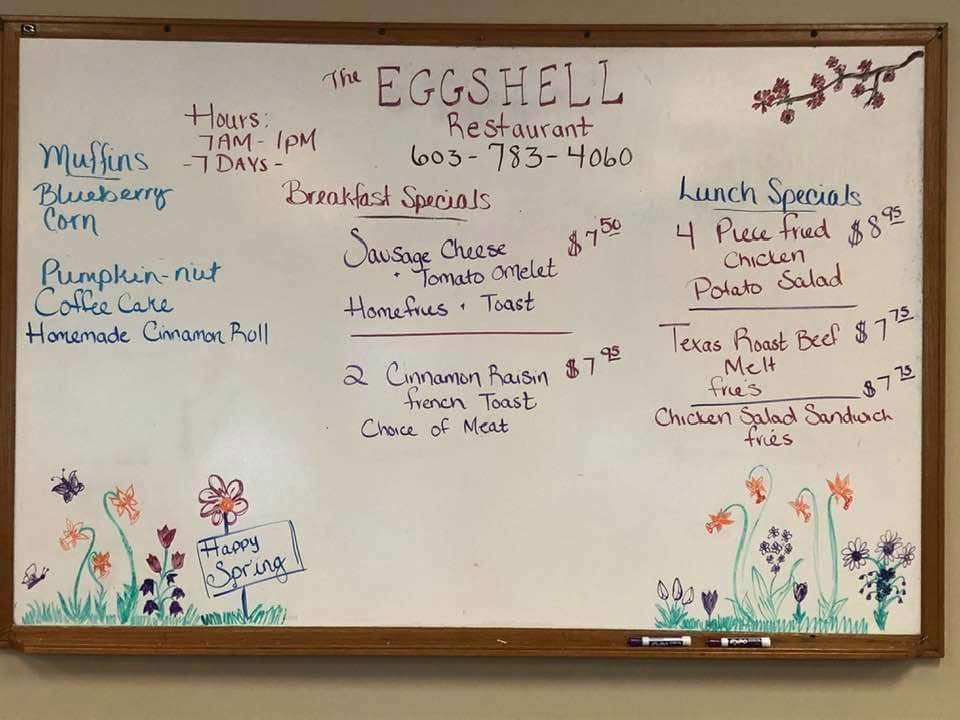 The EGGSHELL
Restaurant
603-783-4060
Hours:
7AM - 1PM
- 7 DAYS -
Muffins
Blueberry
Corn
Pumpkin-nut
Coffee Cake
Homemade Cinnamon Roll
Breakfast Specials
Sausage Cheese $7.50
+ Tomato omelet
Homefries + Toast
2 Cinnamon Raisin $7.95
french Toast
Choice of Meat
Lunch Specials
4 Piece fried $8.95
Chicken
Potato Salad
Texas Roast Beef $7.75
Melt
fries
$7.75
Chicken Salad Sandwich
fries
Happy
Spring